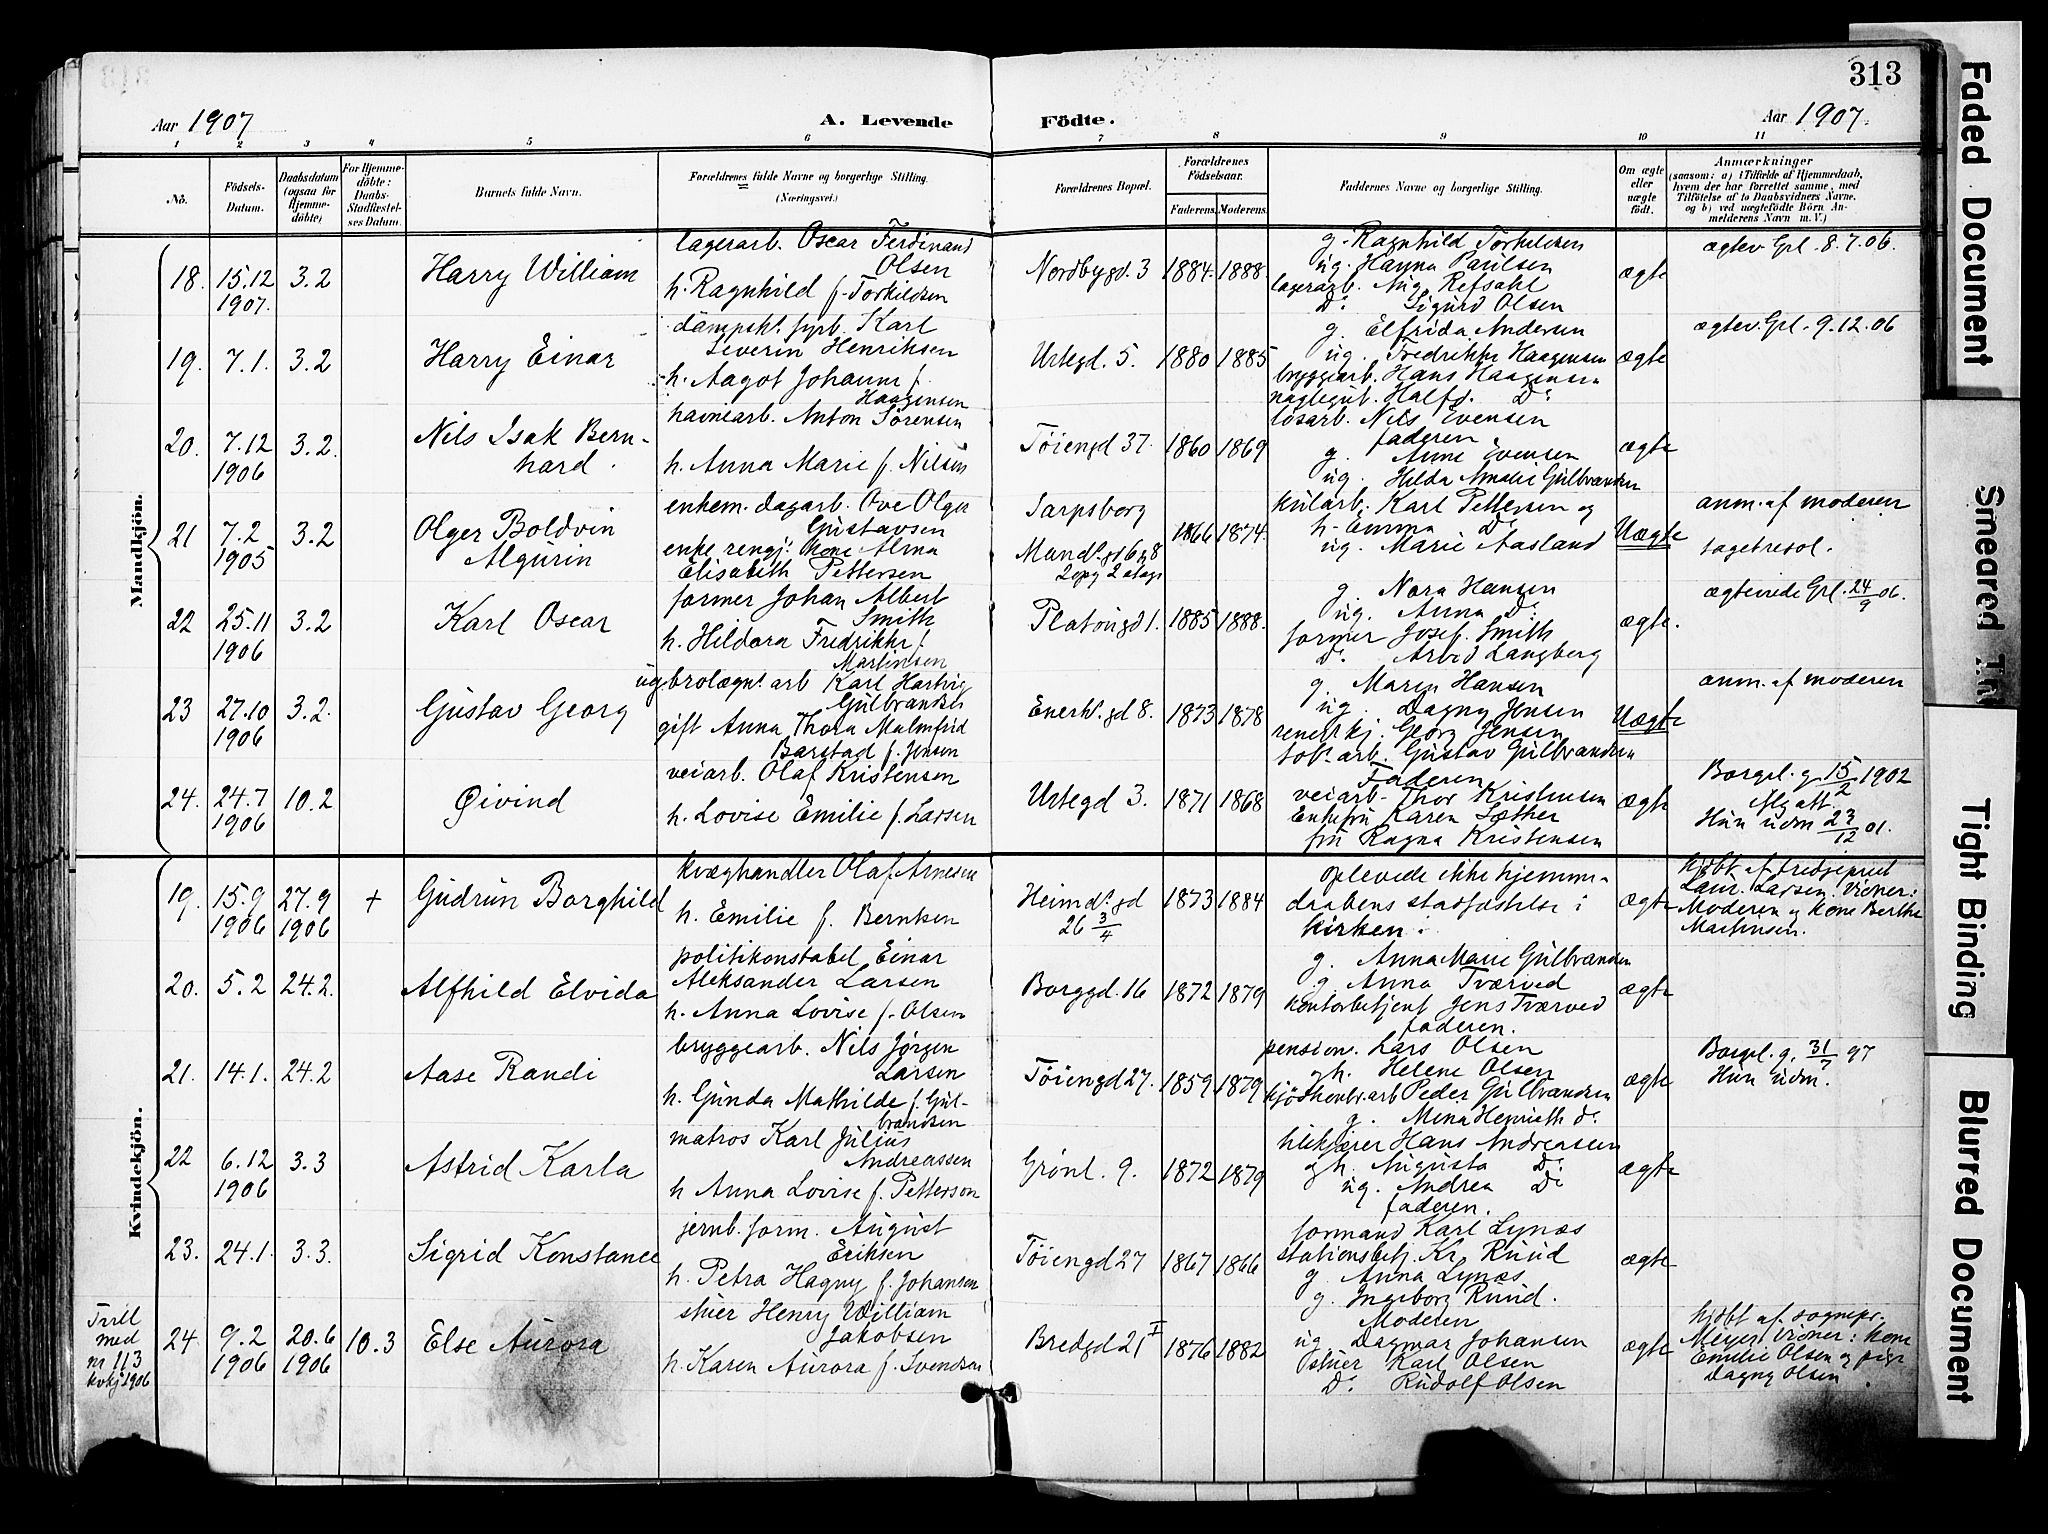 313
Aar 1907
A. Levende
Födte.
Aar 1907.
1 2 3 4 5 6 7 8 9 10 11
No.
Födsels-Datum.
Daabsdatum (ogsaa for Hjemme-döbte)
For Hjemme-döbte: Daabs-Stadfæstelses Datum.
Barnets fulde Navn.
Forældrenes fulde Navne og borgerlige Stilling. (Næringsvei.)
Forældrenes Bopæl.
Forældrenes Födselsaar.
Faderens. Moderens.
Faddernes Navne og borgerlige Stilling.
Om ægte eller uægte födt.
Anmærkninger
(saasom: a) i Tilfælde af Hjemmedaab,
hvem der har forrettet samme, med
Tilföielse af to Daabsvidners Navne,
og b) ved uægtefödte Börn An-
melderens Navn m. V.)
Mandkjön.
18. 15.12 1907. 3.2
Harry William
lagerarb. Oscar Ferdinand
Olsen
h. Ragnhild f. Torkildsen
Nordbygd. 3
1884. 1888.
g. Ragnhild Torkildsen
ug. Hanna Paulsen
lagerarb. Aug. Refsahl
Do Sigurd Olsen
ægte
ægtev. Grl. 8.7.06.
19. 7.1. 3.2
Harry Einar
dampsk. fyrb. Karl
Severin Henriksen
h. Aagot Johanne f.
Haagensen
Urtegd. 5.
1880 1885
g. Elfrida Andersen
ug. Fredrikke Haagensen
bryggearb. Hans Haagensen
naglegut. Halfd. Do
ægte
ægtev. Grl. 9.12.06
20. 7.12 1906 3.2.
Nils Isak Bern-
hard.
havnearb. Anton Sørensen
h. Anna Marie f. Nilsen
Tøiengd 37.
1860 1869
løsarb. Nils Evensen
faderen
g. Anne Evensen
ug. Hilda Amalie Gulbrandsen
ægte
21 7.2 1905 3.2
Olger Boldvin
Algurin
enkem. dagarb. Ove Olger
Gustavsen
enke rengj. kone Alma
Elisabeth Pettersen
Sarpsborg
1866 1874.
kularb. Karl Pettersen og
h. Emma Do
ug. Marie Aasland
Uægte
anm. af moderen
22 25.11 1906 3.2
Karl Oscar
former Johan Albert
Smith
h. Hildora Fredrikke f.
Martinsen
Platougd 1.
1885 1888.
g. Nora Hansen
ug. Anna Do
former Josef Smith
Do Arvid Langberg
ægte.
ægteviede Grl. 24/9 06.
23 27.10 1906 3.2.
Gustav Georg
ug brolægn. arb Karl Hartvig
Gulbrandsen
gift Anna Thora Malmfrid
Barstad f. Jensen
Enerh. gd 8.
1873 1878
g. Maren Hansen
ug. Dagny Jensen
Georg Jensen
tob. arb. Gustav Gulbrandsen
Uægte
anm. af moderen
24. 24.7 1906 10.2
Øivind
veiarb. Olaf Kristensen
h. Lovise Emilie f. Larsen
Urtegd 3.
1871 1868
Faderen
veiarb. Thor Kristensen
Enkefru Karen Sæther
fru Ragna Kristensen
ægte
Borgerl. g. 15/2 1902
Hun udm 23/12 01.
Kvindekjön.
19. 15.9 1906 27.9 1906 +
Gudrun Borghild
kvæghandler Olaf Arnesen
h. Emilie f. Berntsen
Heimd. gd
26 3/4
1873 1884
oplevede ikke hjemme-
daabens stadfæstelse i
kirken.
ægte
hjdbt. af tredjeprest
Laur. Larsen. Vidner:
Moderen og kone Berthe
Martinsen.
20. 5.2 24.2.
Alfhild Elvida
politikonstabel Einar
Aleksander Larsen
h. Anna Lovise f. Olsen
Borggd. 16
1872 1879
g. Anna Marie Gulbrandsen
g. Anna Tværved
kontorbetjent Jens Tværved
faderen.
ægte
21. 14.1. 24.2
Aase Randi
bryggearb. Nils Jørgen
Larsen
h. Gunda Mathilde f. Gul-
brandsen
Tøiengd 27.
1859 1879
pension. Lars Olsen
og h. Helene Olsen
Peder Gulbrandsen
g. Mina Henriette Do
ægte
Borgerl. g. 31/7 97
Hun udm.
22 6.12 1906 3.3
Astrid Karla
matros Karl Julius
Andreassen
h Anna Lovise f. Petterson
Grønl. 9.
1872 1879
Hans Andreassen
og h. Augusta Do
ug. Andrea Do
faderen.
ægte
23. 24.1. 3.3.
Sigrid Konstance
jernb. form. August
Eriksen
h. Petra Hagny f. Johansen
Tøiengd 27
1867 1866
formand Karl Lynæs
stationsbetj. Kr. Ruud
g. Anna Lynæs
g. Ingeborg Ruud.
ægte
Tvill
med
nr 113
kvkj 1906
24. 9.2 1906 20.6 1906 10.3
Else Aurora
Henry William
Jakobsen
h. Karen Aurora f. Svendsen
Bredgd 21 I
1876 1882
Moderen
ug Dagmar Johansen
Karl Olsen
Do Rudolf Olsen
ægte
hjdbt af sognepr.
Meyer. Vidner: kone
Emilie Olsen og pige
Dagny Olsen.
Faded Document
Smeared
Tight Binding
Blurred Document